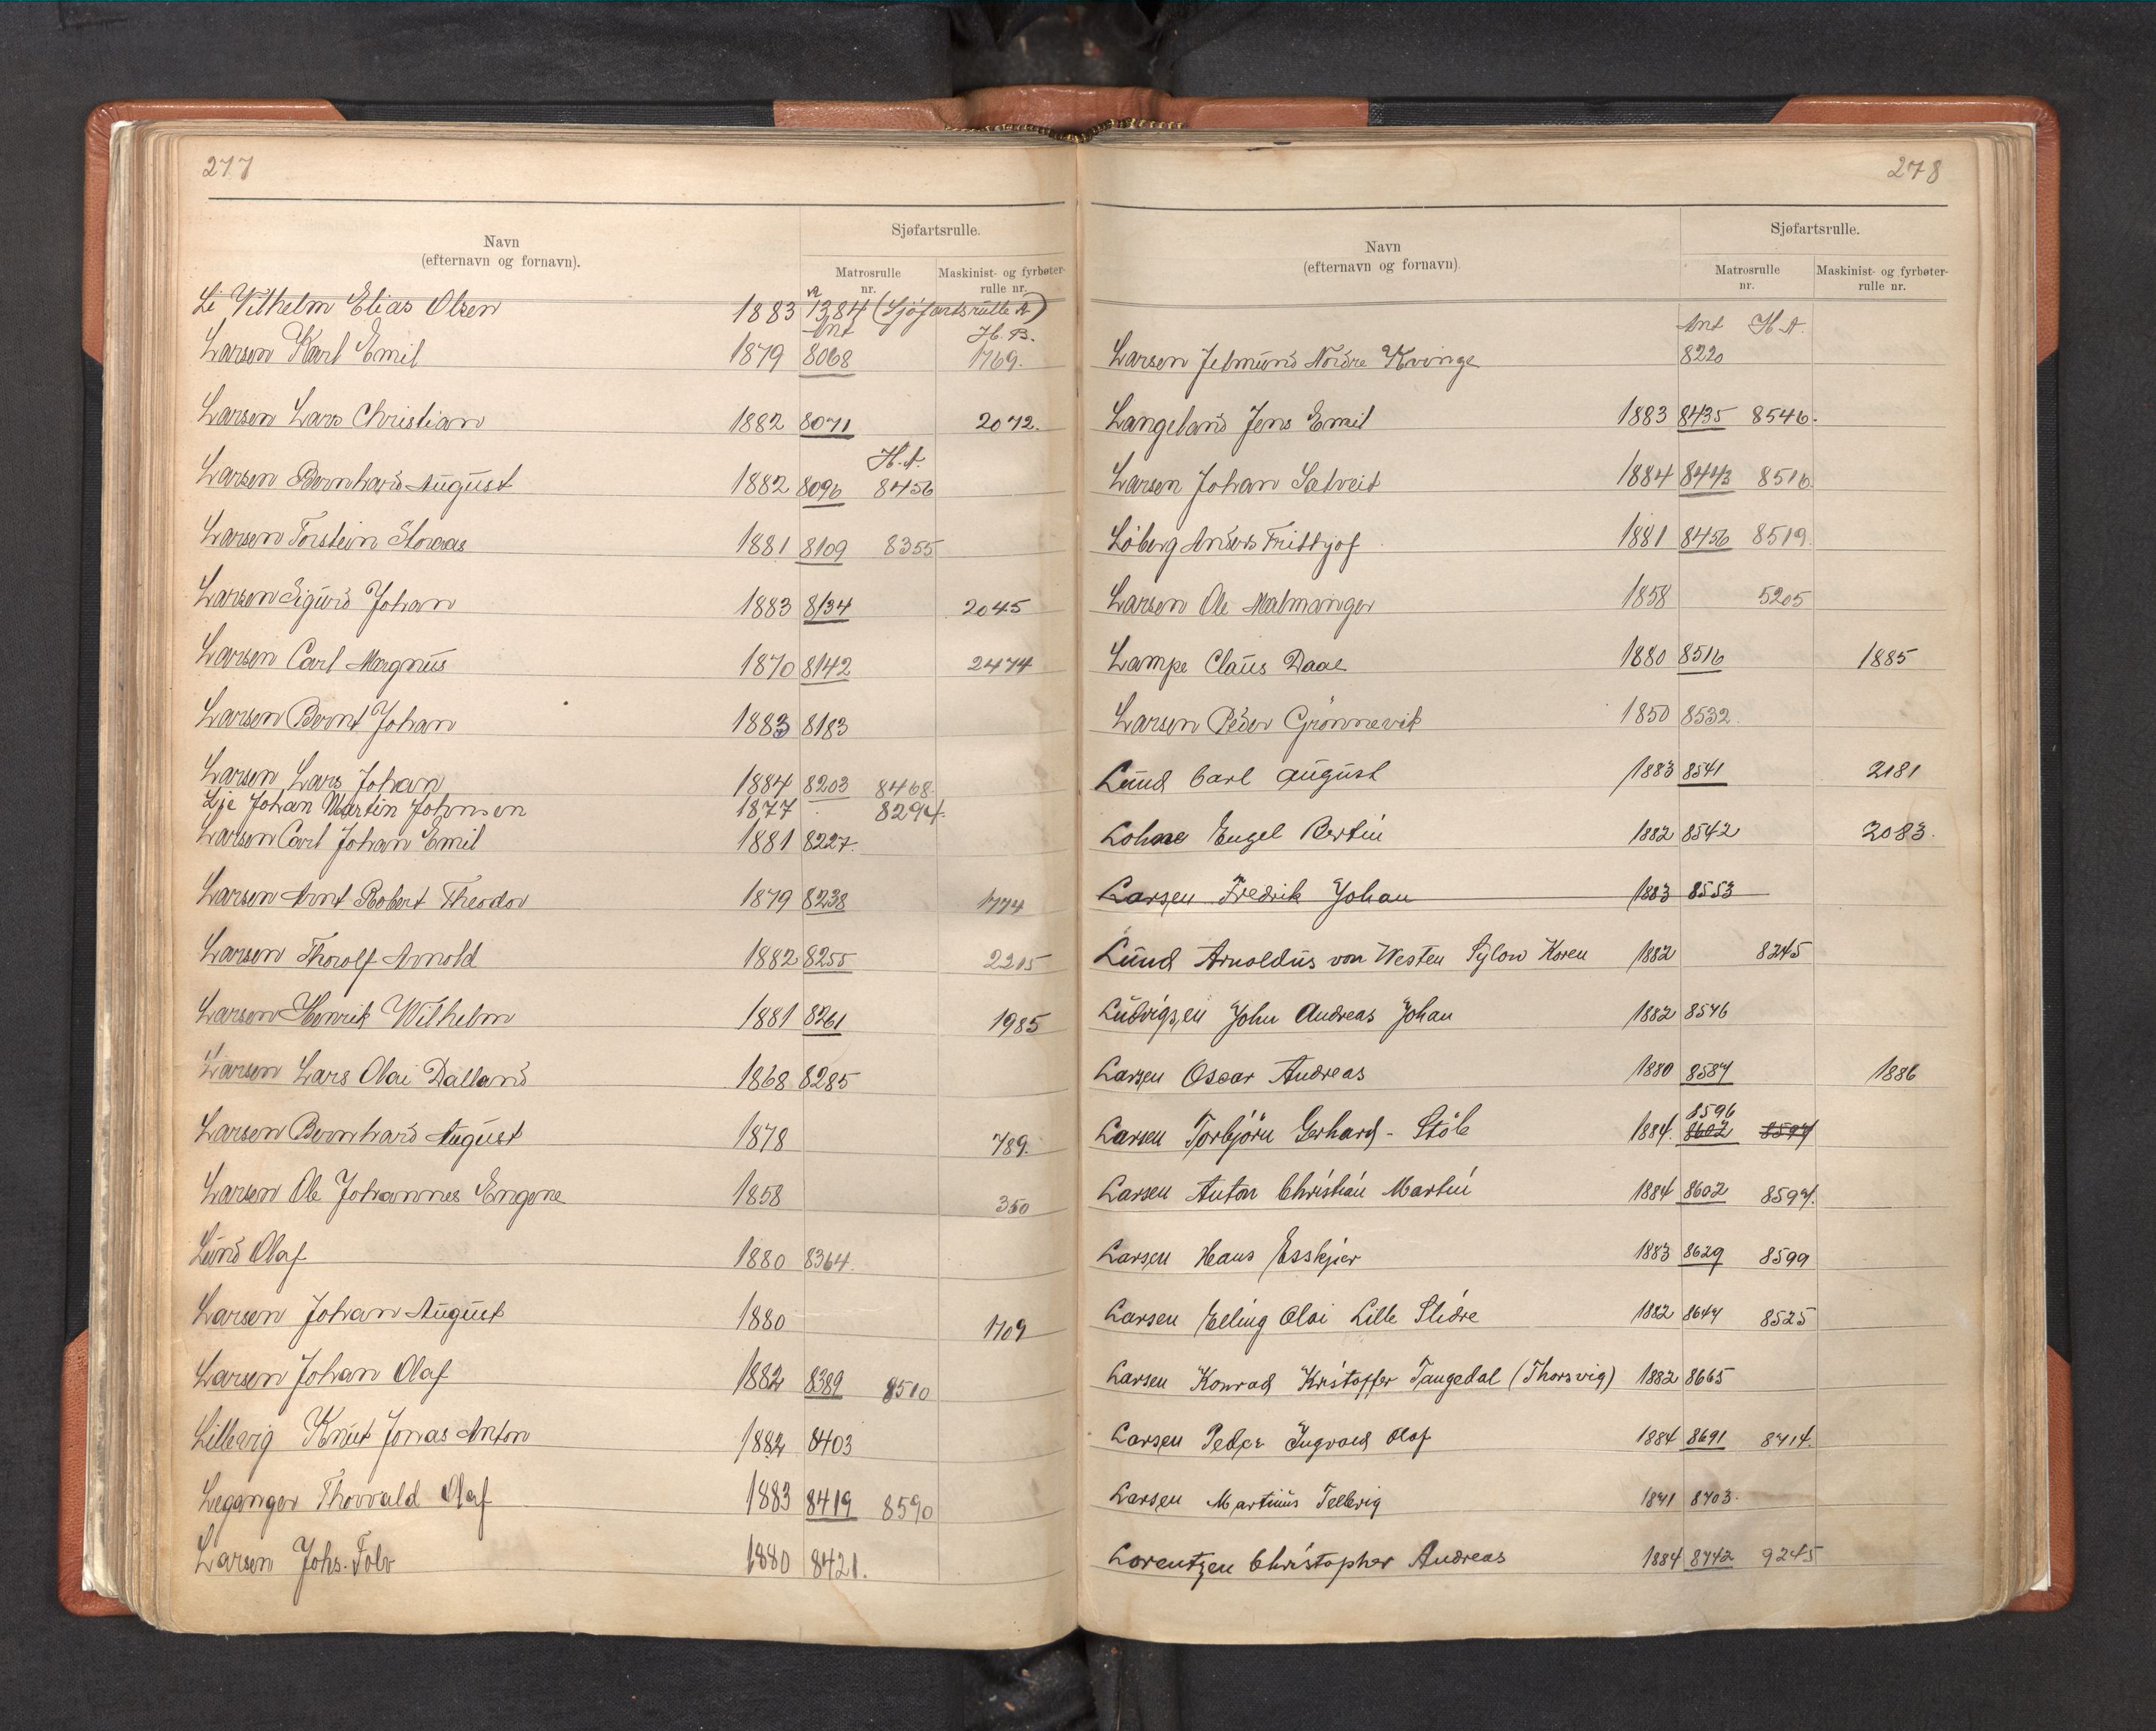 277
Navn
(efternavn og fornavn).
Sjøfartsrulle.
Matrosrulle nr.
Maskinist- og fyrbøter-rulle nr.
Li Vilhelm Elias Olsen 1883 A 1384 (Sjøfartsrulle A)
Ant H.B.
Larsen Karl Emil 1879 8068 1769.
Larsen Lars Christian 1882 8071 2072.
H.A.
Larsen Bernhard August 1882 8096 8456
Larsen Torstein Storaas 1881 8109 8355
Larsen Sigurd Johan 1883 8134 2045
Larsen Carl Magnus 1870 8142 2474
Larsen Bernt Johan 1883 8183
Larsen Lars Johan 1884 8203 8468.
Lje Johan Martin Johnsen 1877 8294.
Larsen Carl Johan Emil 1881 8227.
Larsen Arnt Robert Theodor 1879 8238 1774
Larsen Thorolf Arnold 1882 8255 2215
Larsen Henrik Wilhelm 1881 8261 1985
Larsen Lars Olai Dalland 1868 8285
Larsen Bernhard August 1878 789.
Larsen Ole Johannes Engene 1858 350
Lund Olaf 1880 8364.
Larsen Johan August 1880 1709
Larsen Johan Olaf 1882 8389 8510
Lillevig Knut Jonas Anton 1882 8403
Leganger Thorvald Olaf 1883 8419 8590
Larsen Johs. 1880 8421.
278
Navn
(efternavn og fornavn)
Sjøfartsrulle.
Matrosrulle nr.
Maskinist- og fyrbøter-rulle nr.
Ant H.A.
Larsen Jetmund Nordre Kvinge 8220
Langeland Jens Emil 1883 8435 8546.
Larsen Johan Sætveit 1884 8443 8516.
Løberg Anders Fritthjof 1881 8456 8519.
Larsen Ole Malmanger 1858 5205
Lampe Claus Daae 1880 8516 1885
Larsen Peder Grønnevik 1850 8532.
Lund Carl August 1883 8541 2181
Lohne Engel Bertin 1882 8542 2083.
Larsen Fredrik Johan 1883 8553
Lund Arnoldus von Westen Sylow Koren 1882 8245
Ludvigsen John Andreas Johan 1882 8546
Larsen Oscar Andreas 1880 8584 1886
8596
Larsen Torbjørn Gerhard - Støle 1884. 8602 8594
Larsen Anton Christian Martin 1884 8602 8594.
Larsen Hans Esskjær 1883 8629 8599
Larsen Elling Olai Lille Slidre 1882 8644 8525
Larsen Konrad Kristoffer Tangedal (Thorsvig) 1882 8665
Larsen Peder Ingvald Olaf 1884 8691 8414.
Larsen Martinus Tellevig 1841 8703.
Lorentzen Christopher Andreas 1884 8742 9245